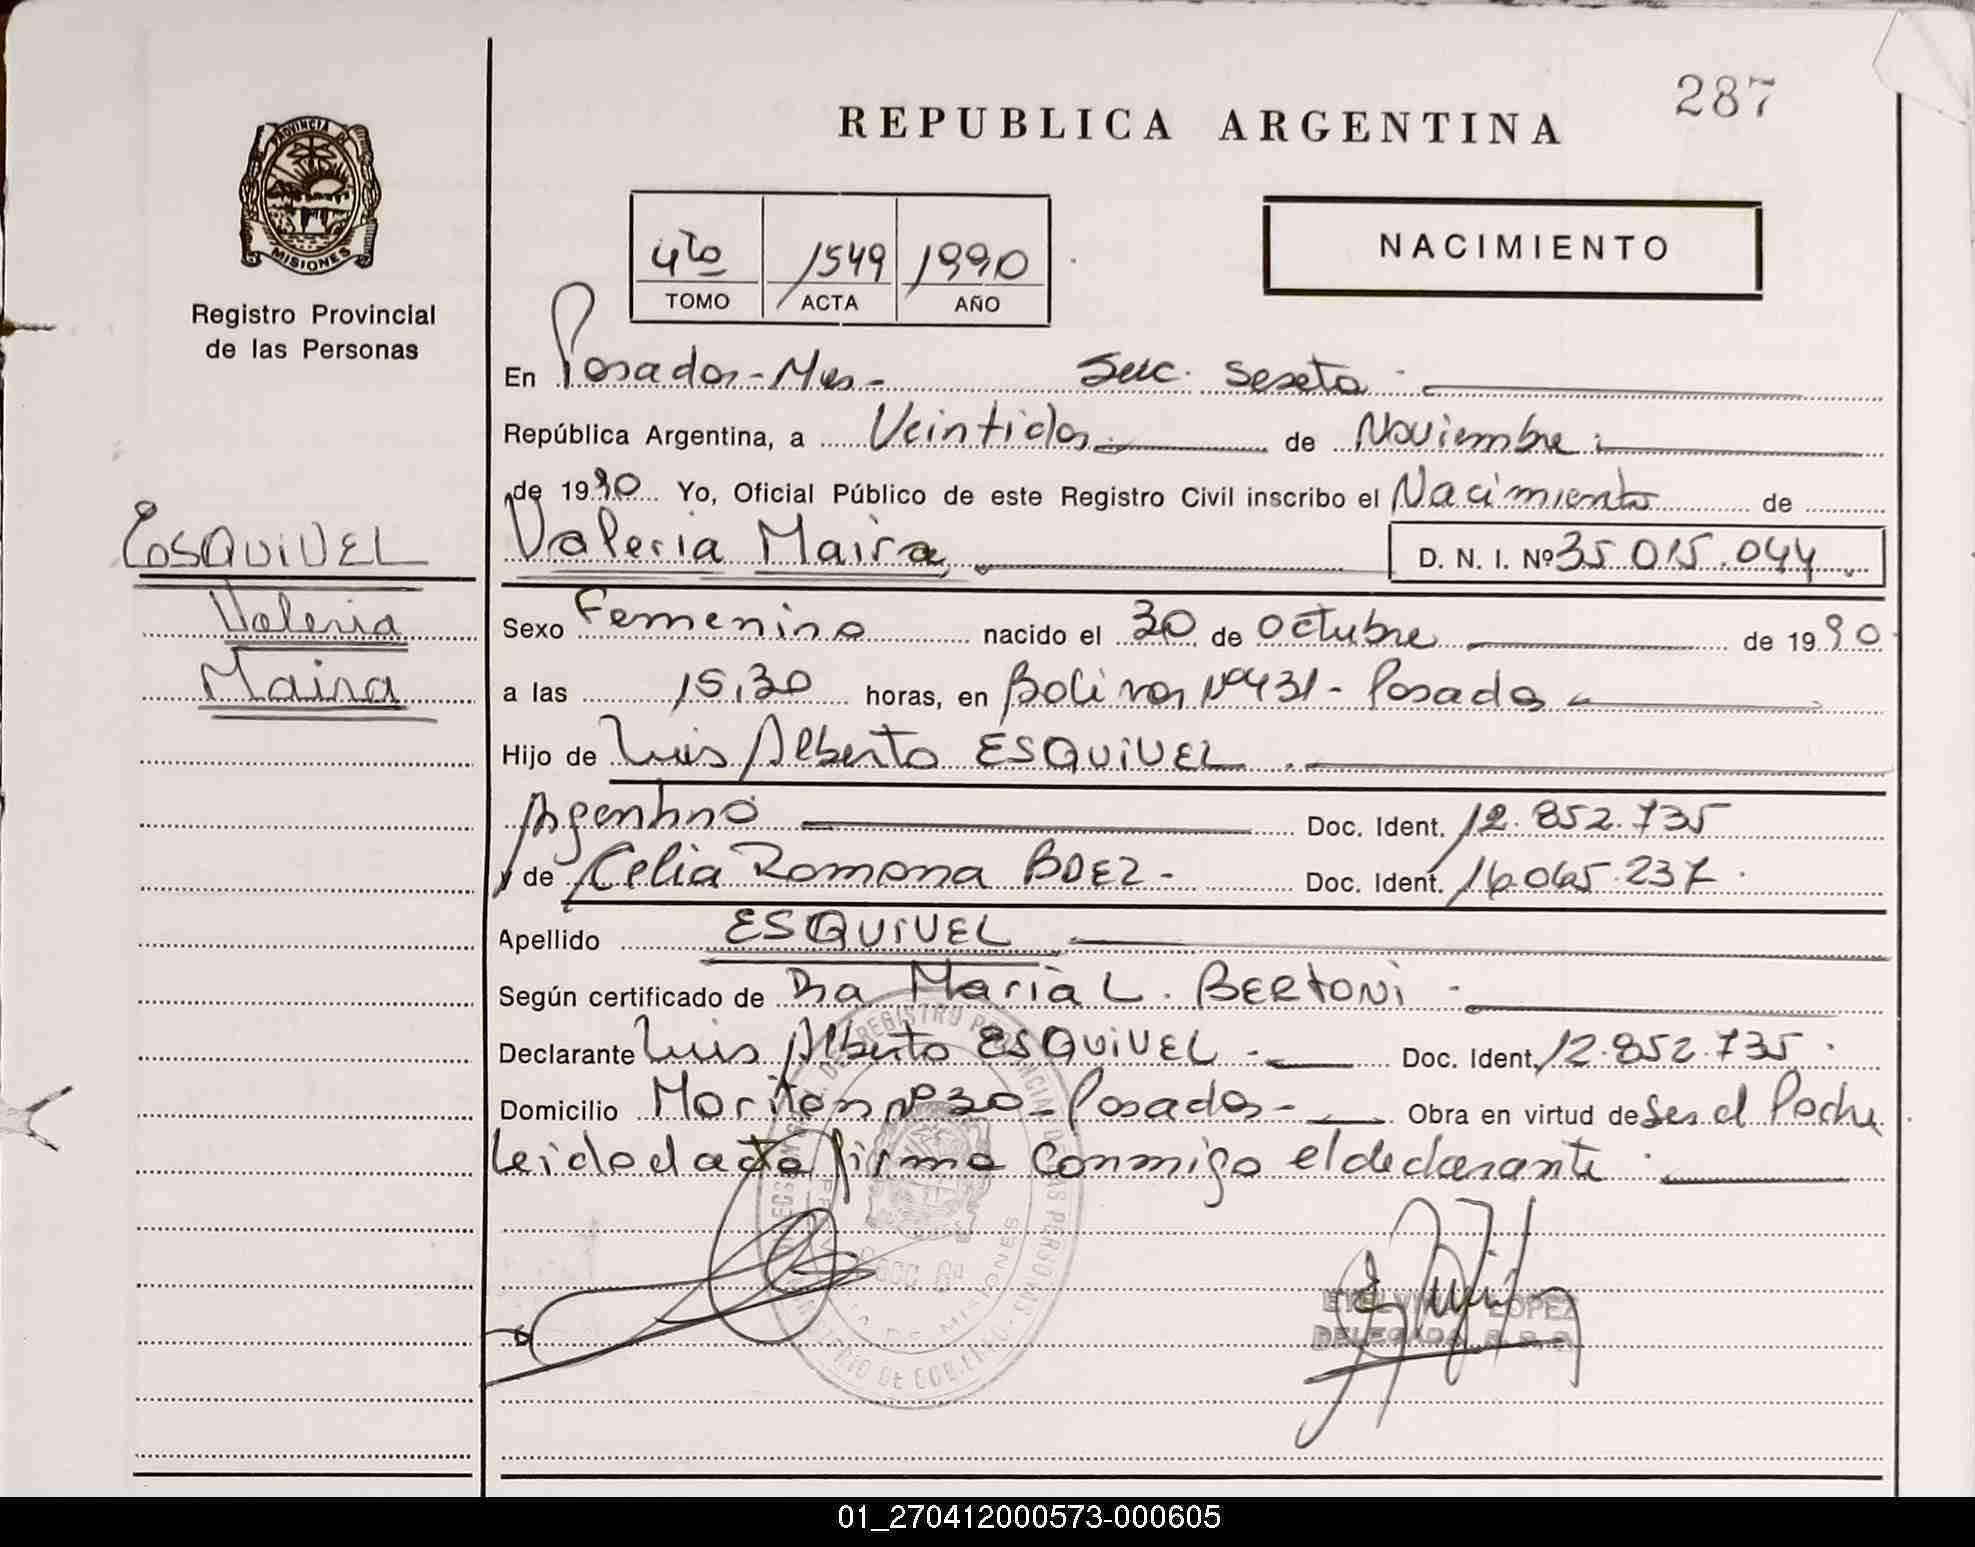 287
REPUBLICA ARGENTINA
PROVINCIA DE
MISIONES
Registro Provincial
de las Personas
4to 1549 1990
TOMO ACTA AÑO
NACIMIENTO
En Posadas - Mnes - Secc. Sexta
República Argentina, a Veintidos de Noviembre
de 1990 Yo, Oficial Público de este Registro Civil inscribo el Nacimiento de
ESQUIVEL
Valeria Maira
Valeria Maira
D. N. I. Nº 35.015.044
Sexo Femenino nacido el 30 de Octubre de 1990
a las 15,30 horas, en Bolivar Nº 431 - Posadas
Hijo de Luis Alberto ESQUIVEL
Argentino Doc. Ident. 12.852.735
y de Celia Ramona BAEZ - Doc. Ident. 16.065.237
Apellido ESQUIVEL
Según certificado de Dra Maria L. BERTONI
Declarante Luis Alberto ESQUIVEL - Doc. Ident. 12.852.735
Domicilio Nº 30 - Posadas - Obra en virtud de Ser el Padre
Leido el acta firma conmigo el declarante
LOPEZ
DELEGADO
01_270412000573-000605